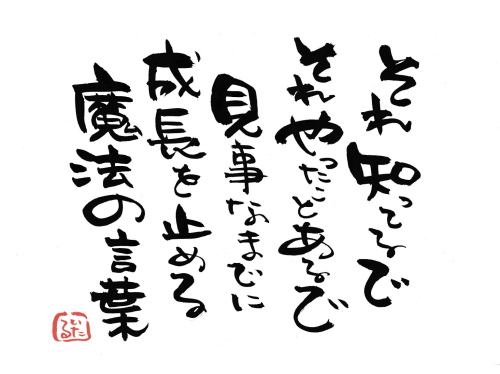 それ 知ってるで
それ やったことあるで
見事なまでに
成長を止める
魔法の言葉